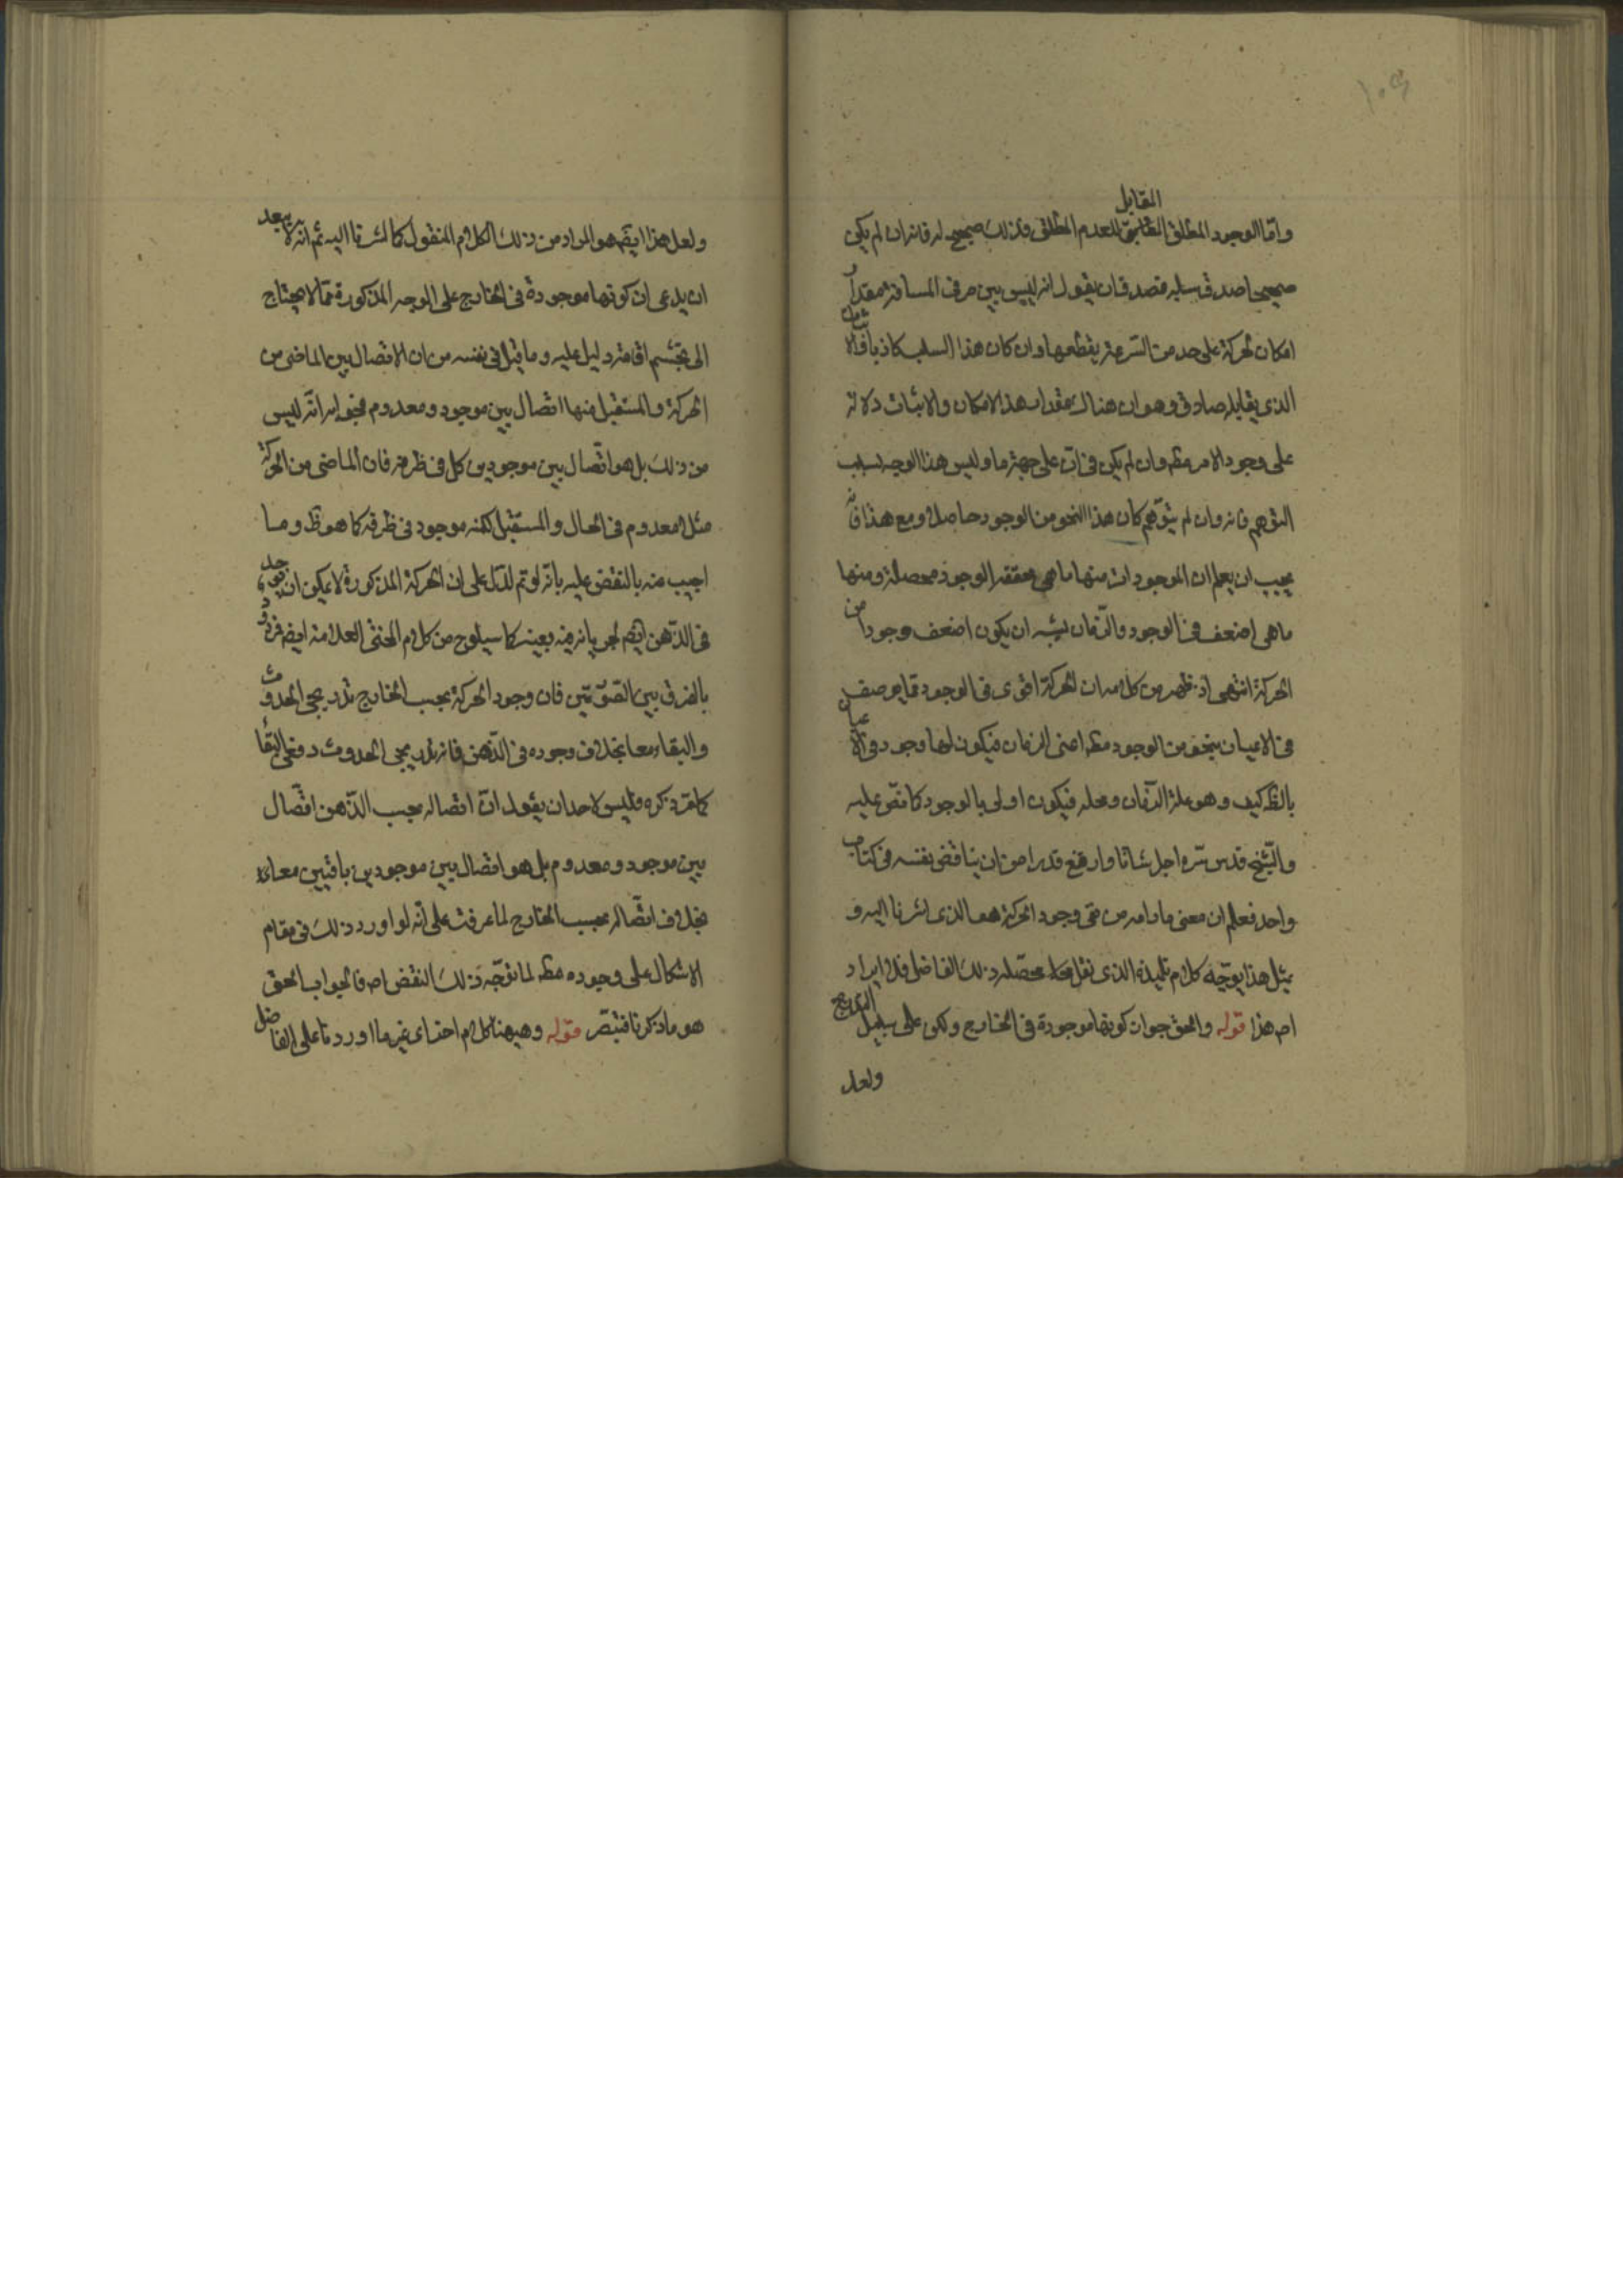 ۱۰۹
المقابل
واما الوجود المطلق للعدم المطلق فذلك صحيح له فانه ان لم يكن
صحيحا صدق سلبه فصدق ان يقول انه ليس بين طرفى المسافة مقدار
امكان لحركة على حد من السرعة يقطعها وان كان هذا السلب كاذبا فالاثبات
الذى يقابله صادق وهو ان هناك مقدار هذا الامكان والاثبات دلالة
على وجود الامر مطـ وان لم يكن فى ان على جهة ما وليس هذا الوجه بسبب
التوهم فانه وان لم يتوهم كان هذا النحو من الوجود حاصلا ومع هذا فانه
يجب ان يعلم ان الموجودات منها ما هى محققة الوجود محصلة ومنها
ما هى اضعف فى الوجود والزمان يشبه ان يكون اضعف وجودا من
الحركة انتهى اذ ظهر من كلامه ان الحركة اقوى فى الوجود مما يوصف
فى الاعيان بنحو من الوجود مطـ اعنى الزمان فيكون لها وجود فى الاعيان
بالظ كيف وهو علة الزمان ومحله فيكون اولى بالوجود كما نص عليه
والشيخ قدس سره اجل شانا وارفع قدرا من ان يناقض نفسه فى كتاب
واحد فعلم ان معنى ما رامه من نفى وجود الحركة هو الذى اشرنا اليه و
بمثل هذا يوجه كلام تلميذه الذى نقل محصله ذلك الفاضل فلا ايراد
اصـ هذا قوله والحق جواز كونها موجودة فى الخارج ولكن على سبيل التدريج
ولعل
ولعل هذا ايضـ هو المراد من ذلك الكلام المنقول كما اشرنا اليه ثم انه لا يبعد
ان يدعى ان كونها موجودة فى الخارج على الوجه المذكورة مما لا يحتاج
الى تجشم اقامة دليل عليه وما قيل فى نفسه من ان الاتصال بين الماضى من
الحركة والمستقبل منها اتصال بين موجود ومعدوم فجوابه انه ليس
من ذلك بل هو اتصال بين موجودين كل فى ظرفه فان الماضى من الحركة
مثلا معدوم فى الحال والمستقبل لكنه موجود فى ظرفه كما هو ظـ وما
اجيب منه بالنقض عليه بانه لو تم لدل على ان الحركة المذكورة لا يكون ان يوجد
فى الذهن ايضـ لجريانه فيه بعينه كما سيلوح من كلام المحشى العلامة ايضـ فمردود
بالفرق بين الصورتين فان وجود الحركة بحسب الخارج تدريجى الحدوث
والبقاء معا بخلاف وجوده فى الذهن فانه تدريجى الحدوث دفعى البقاء
كما مر ذكره وليس لاحد ان يقول ان اتصاله بحسب الذهن اتصال
بين موجود ومعدوم بل هو اتصال بين موجودين باقيين معا
بخلاف اتصاله بحسب الخارج لما عرفت على انه لو اورد ذلك فى مقام
الاشكال على وجوده مطـ لما توجه ذلك النقض اصـ فالجواب الحق
هو ما ذكرنا فتبصر قوله وهيهنا كلام اخر اى غير ما اوردنا على الفاضل